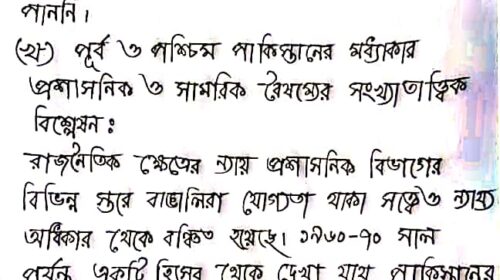 পাননি।
(খ) পূর্ব ও পশ্চিম পাকিস্তানের মধ্যকার
প্রশাসনিক ও সামরিক বৈষম্যের সংখ্যাতাত্ত্বিক
বিশ্লেষন :
রাজনৈতিক ক্ষেত্রের ন্যায় প্রশাসনিক বিভাগের
বিভিন্ন স্তরে বাঙালিরা যোগ্যতা থাকা সত্ত্বেও ন্যায্য
অধিকার থেকে বঞ্চিত হয়েছে। ১৯৬০-৭০ সাল
পর্যন্ত একটি হিসেব থেকে দেখা যায় পাকিস্তানের